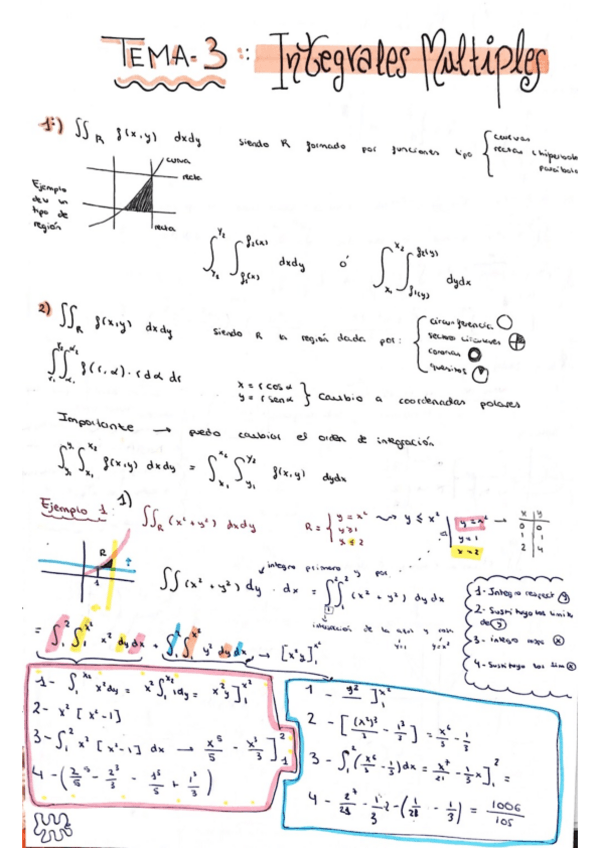 TEMA-3 :: Integrales Multiples
1:) ∬R f(x,y) dxdy siendo R formado por funciones tipo { curvas
rectas e hiperbola
parábola
curva
recta
recta
Ejemplo
de un
tipo de
región
∫y₁^y₂ ∫f₁(x)^f₂(x) dxdy ó ∫x₁^x₂ ∫f₁(y)^f₂(y) dydx
2) ∬R f(x,y) dxdy siendo R la región dada por: { circunferencia
sectores circulares
coronas
quesitos
∫r₁^r₂ ∫α₁^α₂ f(r,α)·r dα dr
x = r cos α
y = r sen α } Cambio a coordenadas polares
Importante → puedo cambiar el orden de integración
∫y₁^y₂ ∫x₁^x₂ f(x,y) dxdy = ∫x₁^x₂ ∫y₁^y₂ f(x,y) dydx
Ejemplo 1: 1) ∬R (x²+y²) dxdy R = { y = x² ⤳ y ≤ x² | y = x² →
y≥1 y = 1
x ≤ 2 x = 2
x y
0 0
1 1
2 4
R
1
integro primero y por
∬ (x² + y²) dy · dx = ∫∫ (x² + y²) dy dx
intersección de la
y=1 y=x²
1- Integro respect y
2- Sustituyo los limits
de y
3- integro respx x
4- Sustituyo los lim x
= ∫₁² ∫₁^x² x² dy dx + ∫₁² ∫₁^x² y² dy dx → [x²y]₁^x²
1- ∫₁^x² x²dy = x² ∫₁^x² 1dy = x²y]₁^x²
2- x² [x²-1]
3- ∫₁² x² [x²-1] dx → x⁵/5 - x³/3 ]₁²
4- (2⁵/5 - 2³/3 - 1⁵/5 + 1³/3)
1 - y³/3 ]₁^x²
2 - [(x²)³/3 - 1³/3] = x⁶/3 - 1/3
3 - ∫₁² (x⁶/3 - 1/3)dx = x⁷/21 - 1/3 x]₁² =
4 - 2⁷/21 - 1/3·2 - (1/21 - 1/3) = 1006/105